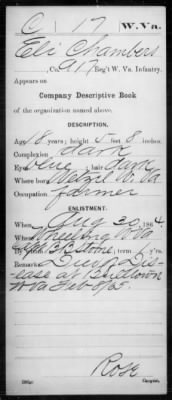 C 17 W. Va.
Eli Chambers
Co. G 17 Reg't W. Va. Infantry.
Appears on
Company Descriptive Book
of the organization named above.
DESCRIPTION.
Age 18 years; height 5 feet 8 inches.
Complexion dark
Eyes blue; hair dark
Where born Wetzel W. Va
Occupation farmer
ENLISTMENT.
When Aug 30, 1864.
Where Wheeling W Va
By whom ; term 1 y'rs.
Remarks: Died of Dis-
ease at Bulltown
W Va Feb 8/65
Rose
Copyist.